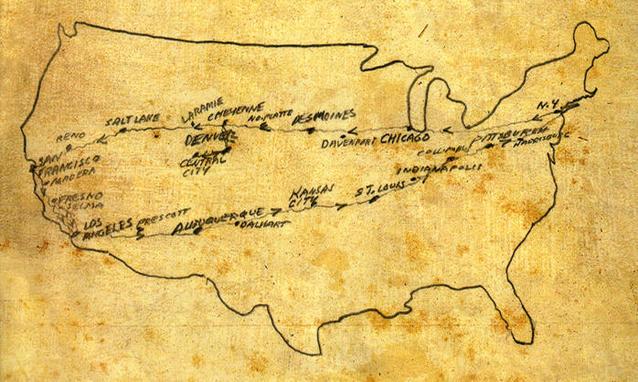 N.Y.
LARAMIE
CHEYENNE
SALT LAKE
NO. PLATTE
DES MOINES
RENO
DENVER
DAVENPORT
CHICAGO
PITTSBURGH
HARRISBURG
SAN
FRANCISCO
MADERA
CENTRAL
CITY
INDIANAPOLIS
FRESNO
SELMA
KANSAS
CITY
ST. LOUIS
LOS
ANGELES
PRESCOTT
ALBUQUERQUE
DALHART